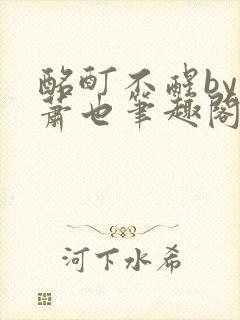 酩酊不醒by
萧也笔趣阁
河下水希